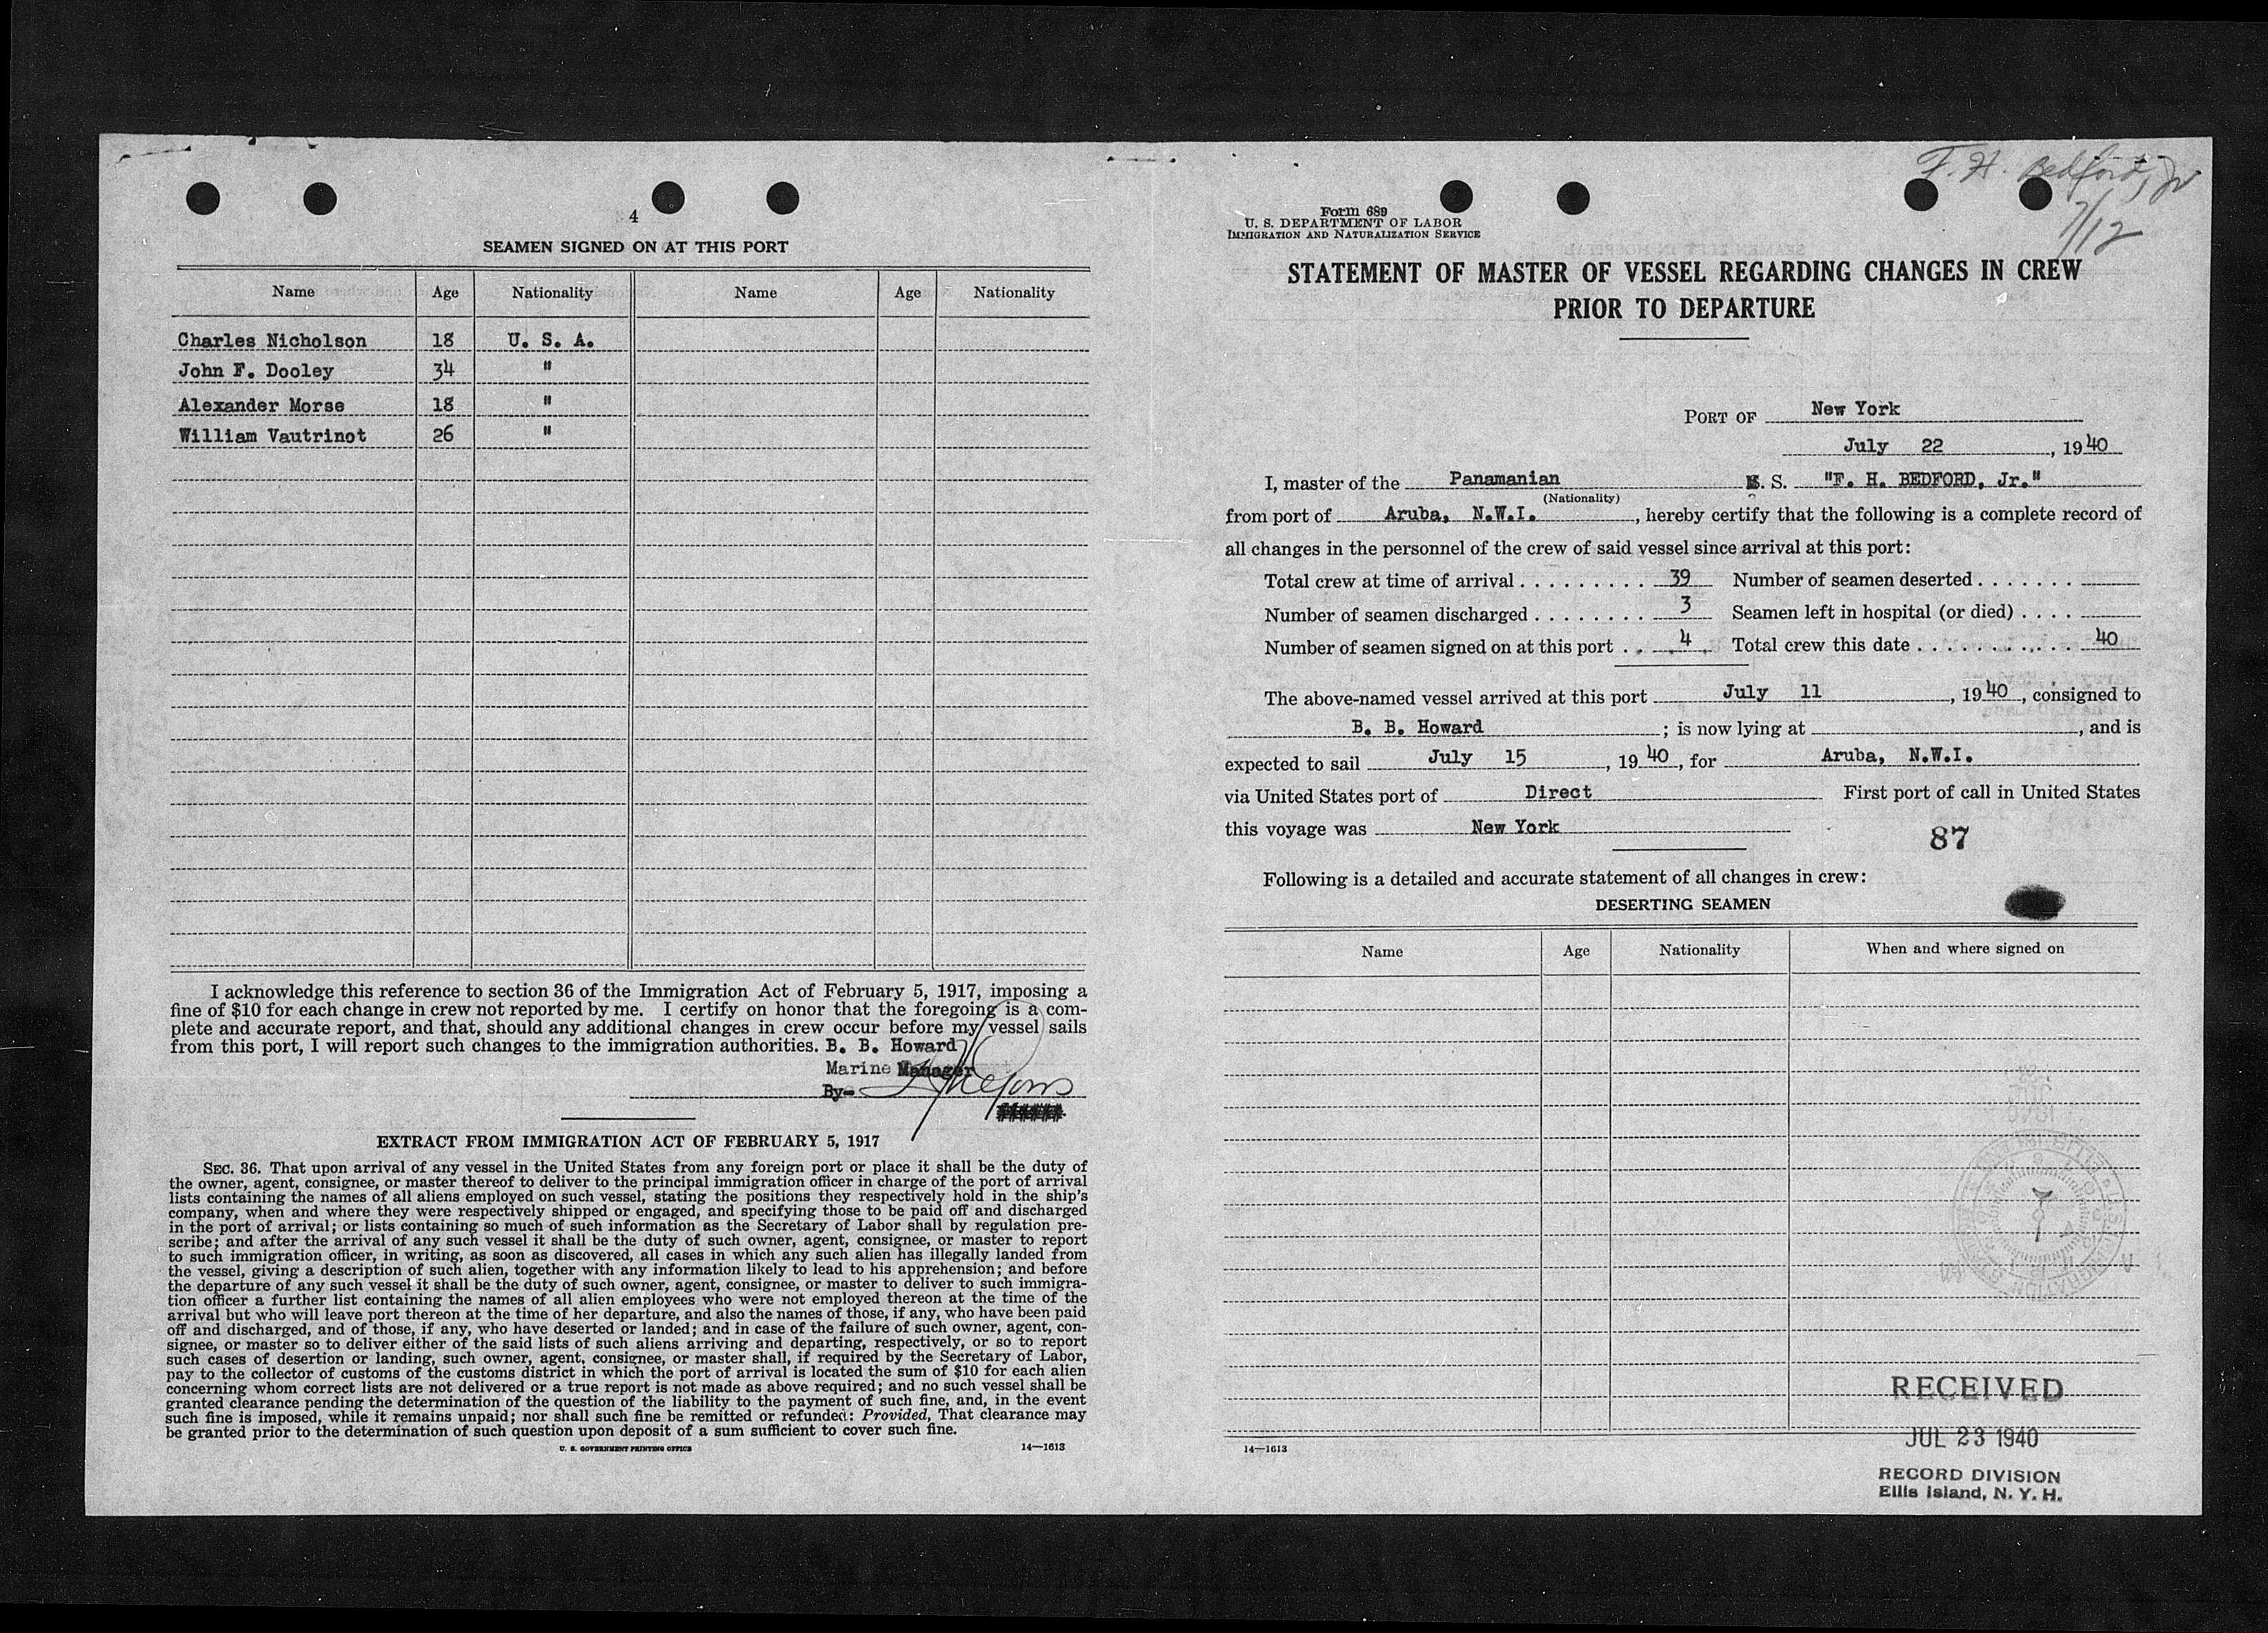 4
SEAMEN SIGNED ON AT THIS PORT
Name Age Nationality Name Age Nationality
Charles Nicholson 18 U. S. A.
John F. Dooley 34 "
Alexander Morse 18 "
William Vautrinot 26 "
I acknowledge this reference to section 36 of the Immigration Act of February 5, 1917, imposing a
fine of $10 for each change in crew not reported by me. I certify on honor that the foregoing is a com-
plete and accurate report, and that, should any additional changes in crew occur before my vessel sails
from this port, I will report such changes to the immigration authorities. B. B. Howard
Marine Manager
By-
EXTRACT FROM IMMIGRATION ACT OF FEBRUARY 5, 1917
SEC. 36. That upon arrival of any vessel in the United States from any foreign port or place it shall be the duty of
the owner, agent, consignee, or master thereof to deliver to the principal immigration officer in charge of the port of arrival
lists containing the names of all aliens employed on such vessel, stating the positions they respectively hold in the ship's
company, when and where they were respectively shipped or engaged, and specifying those to be paid off and discharged
in the port of arrival; or lists containing so much of such information as the Secretary of Labor shall by regulation pre-
scribe; and after the arrival of any such vessel it shall be the duty of such owner, agent, consignee, or master to report
to such immigration officer, in writing, as soon as discovered, all cases in which any such alien has illegally landed from
the vessel, giving a description of such alien, together with any information likely to lead to his apprehension; and before
the departure of any such vessel it shall be the duty of such owner, agent, consignee, or master to deliver to such immigra-
tion officer a further list containing the names of all alien employees who were not employed thereon at the time of the
arrival but who will leave port thereon at the time of her departure, and also the names of those, if any, who have been paid
off and discharged, and of those, if any, who have deserted or landed; and in case of the failure of such owner, agent, con-
signee, or master so to deliver either of the said lists of such aliens arriving and departing, respectively, or so to report
such cases of desertion or landing, such owner, agent, consignee, or master shall, if required by the Secretary of Labor,
pay to the collector of customs of the customs district in which the port of arrival is located the sum of $10 for each alien
concerning whom correct lists are not delivered or a true report is not made as above required; and no such vessel shall be
granted clearance pending the determination of the question of the liability to the payment of such fine, and, in the event
such fine is imposed, while it remains unpaid; nor shall such fine be remitted or refunded: Provided, That clearance may
be granted prior to the determination of such question upon deposit of a sum sufficient to cover such fine.
U. S. GOVERNMENT PRINTING OFFICE 14—1613
F. H. Bedford, Jr
7/12
Form 689
U. S. DEPARTMENT OF LABOR
IMMIGRATION AND NATURALIZATION SERVICE
STATEMENT OF MASTER OF VESSEL REGARDING CHANGES IN CREW
PRIOR TO DEPARTURE
PORT OF New York
July 22, 1940
I, master of the Panamanian S. S. "F. H. BEDFORD, Jr."
(Nationality)
from port of Aruba, N.W.I., hereby certify that the following is a complete record of
all changes in the personnel of the crew of said vessel since arrival at this port:
Total crew at time of arrival . . . . . . . . . . 39 Number of seamen deserted . . . . . . .
Number of seamen discharged . . . . . . . . 3 Seamen left in hospital (or died) . . . .
Number of seamen signed on at this port . . 4 Total crew this date . . . . . . . . . . . . 40
The above-named vessel arrived at this port July 11, 1940, consigned to
B. B. Howard; is now lying at , and is
expected to sail July 15, 1940, for Aruba, N.W.I.
via United States port of Direct First port of call in United States
this voyage was New York
87
Following is a detailed and accurate statement of all changes in crew:
DESERTING SEAMEN
Name Age Nationality When and where signed on
RECEIVED
JUL 23 1940
14—1613
RECORD DIVISION
Ellis Island, N. Y. H.